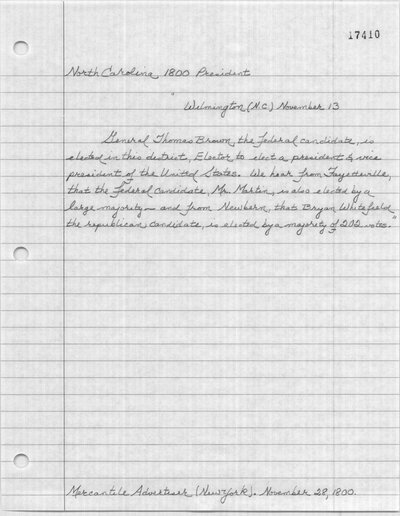 17410
North Carolina 1800 President
"Wilmington (N.C.) November 13
General Thomas Brown, the Federal candidate, is
elected in this district, Elector to elect a president & vice
president of the United States. We hear from Fayetteville,
that the Federal Candidate, Mr. Martin, is also elected by a
large majority — and from Newbern, that Bryan Whitefield,
the republican candidate, is elected by a majority of 202 votes."
Mercantile Advertiser (New York). November 28, 1800.